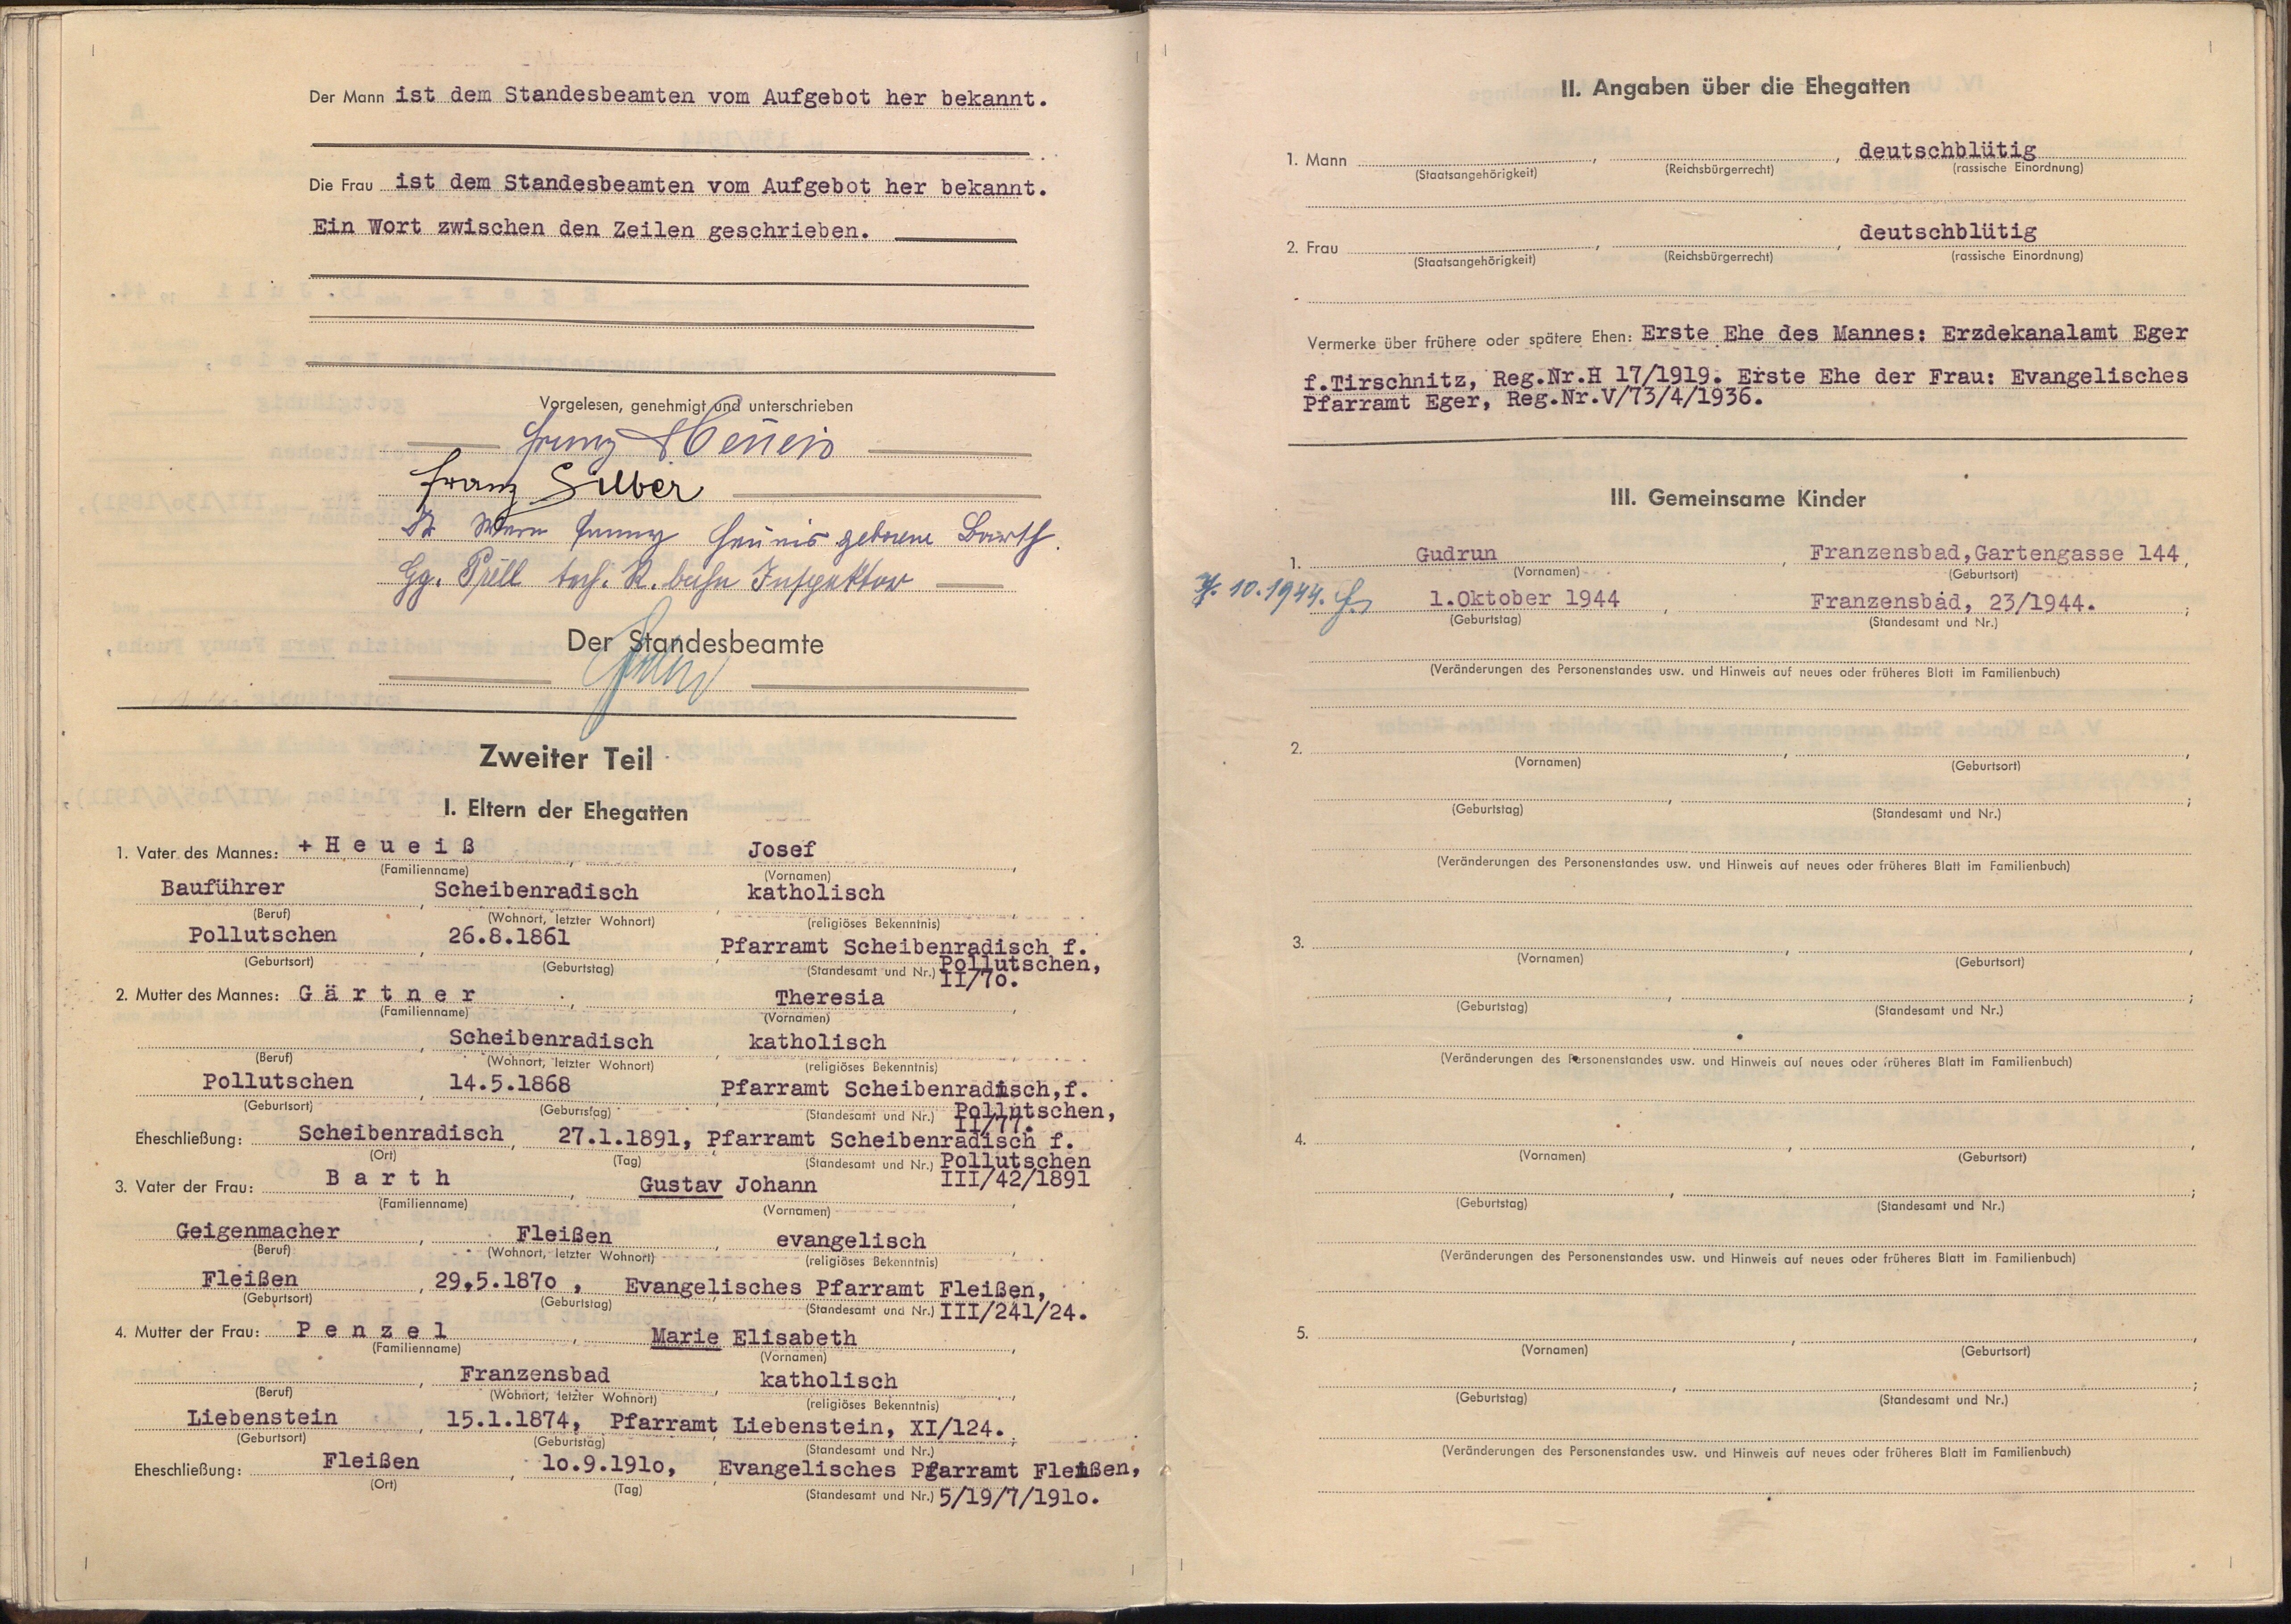 Der Mann ist dem Standesbeamten vom Aufgebot her bekannt.
Die Frau ist dem Standesbeamten vom Aufgebot her bekannt.
Ein Wort zwischen den Zeilen geschrieben.
Vorgelesen, genehmigt und unterschrieben
Franz
Franz Silber
Fanny geborene Barth
Gg. Prell tech. R. bahn Inspektor
Der Standesbeamte
Zweiter Teil
I. Eltern der Ehegatten
1. Vater des Mannes: + H e u e i ß , Josef
(Familienname) (Vornamen)
Bauführer , Scheibenradisch , katholisch
(Beruf) (Wohnort, letzter Wohnort) (religiöses Bekenntnis)
Pollutschen , 26.8.1861 , Pfarramt Scheibenradisch f.
(Geburtsort) (Geburtstag) (Standesamt und Nr.) Pollutschen,
II/7o.
2. Mutter des Mannes: G ä r t n e r , Theresia
(Familienname) (Vornamen)
Scheibenradisch , katholisch
(Beruf) (Wohnort, letzter Wohnort) (religiöses Bekenntnis)
Pollutschen , 14.5.1868 Pfarramt Scheibenradisch,f.
(Geburtsort) (Geburtstag) (Standesamt und Nr.) Pollutschen,
II/77.
Eheschließung: Scheibenradisch , 27.1.1891, Pfarramt Scheibenradisch f.
(Ort) (Tag) (Standesamt und Nr.) Pollutschen
III/42/1891
3. Vater der Frau: B a r t h , Gustav Johann
(Familienname) (Vornamen)
Geigenmacher , Fleißen , evangelisch
(Beruf) (Wohnort, letzter Wohnort) (religiöses Bekenntnis)
Fleißen , 29.5.187o , Evangelisches Pfarramt Fleißen,
(Geburtsort) (Geburtstag) (Standesamt und Nr.) III/241/24.
4. Mutter der Frau: P e n z e l , Marie Elisabeth
(Familienname) (Vornamen)
Franzensbad , katholisch
(Beruf) (Wohnort, letzter Wohnort) (religiöses Bekenntnis)
Liebenstein , 15.1.1874, Pfarramt Liebenstein, XI/124.
(Geburtsort) (Geburtstag) (Standesamt und Nr.)
Eheschließung: Fleißen , 1o.9.191o, Evangelisches Pfarramt Fleißen,
(Ort) (Tag) (Standesamt und Nr.) 5/19/7/191o.
II. Angaben über die Ehegatten
1. Mann , , deutschblütig
(Staatsangehörigkeit) (Reichsbürgerrecht) (rassische Einordnung)
2. Frau , , deutschblütig
(Staatsangehörigkeit) (Reichsbürgerrecht) (rassische Einordnung)
Vermerke über frühere oder spätere Ehen: Erste Ehe des Mannes: Erzdekanalamt Eger
f.Tirschnitz, Reg.Nr.H 17/1919. Erste Ehe der Frau: Evangelisches
Pfarramt Eger, Reg.Nr.V/73/4/1936.
III. Gemeinsame Kinder
1. Gudrun , Franzensbad,Gartengasse 144,
(Vornamen) (Geburtsort)
10.1944. 1.Oktober 1944 , Franzensbad, 23/1944. ;
(Geburtstag) (Standesamt und Nr.)
(Veränderungen des Personenstandes usw. und Hinweis auf neues oder früheres Blatt im Familienbuch)
2. , ,
(Vornamen) (Geburtsort)
, ;
(Geburtstag) (Standesamt und Nr.)
(Veränderungen des Personenstandes usw. und Hinweis auf neues oder früheres Blatt im Familienbuch)
3. , ,
(Vornamen) (Geburtsort)
, ;
(Geburtstag) (Standesamt und Nr.)
(Veränderungen des Personenstandes usw. und Hinweis auf neues oder früheres Blatt im Familienbuch)
4. , ,
(Vornamen) (Geburtsort)
, ;
(Geburtstag) (Standesamt und Nr.)
(Veränderungen des Personenstandes usw. und Hinweis auf neues oder früheres Blatt im Familienbuch)
5. , ,
(Vornamen) (Geburtsort)
, ;
(Geburtstag) (Standesamt und Nr.)
(Veränderungen des Personenstandes usw. und Hinweis auf neues oder früheres Blatt im Familienbuch)